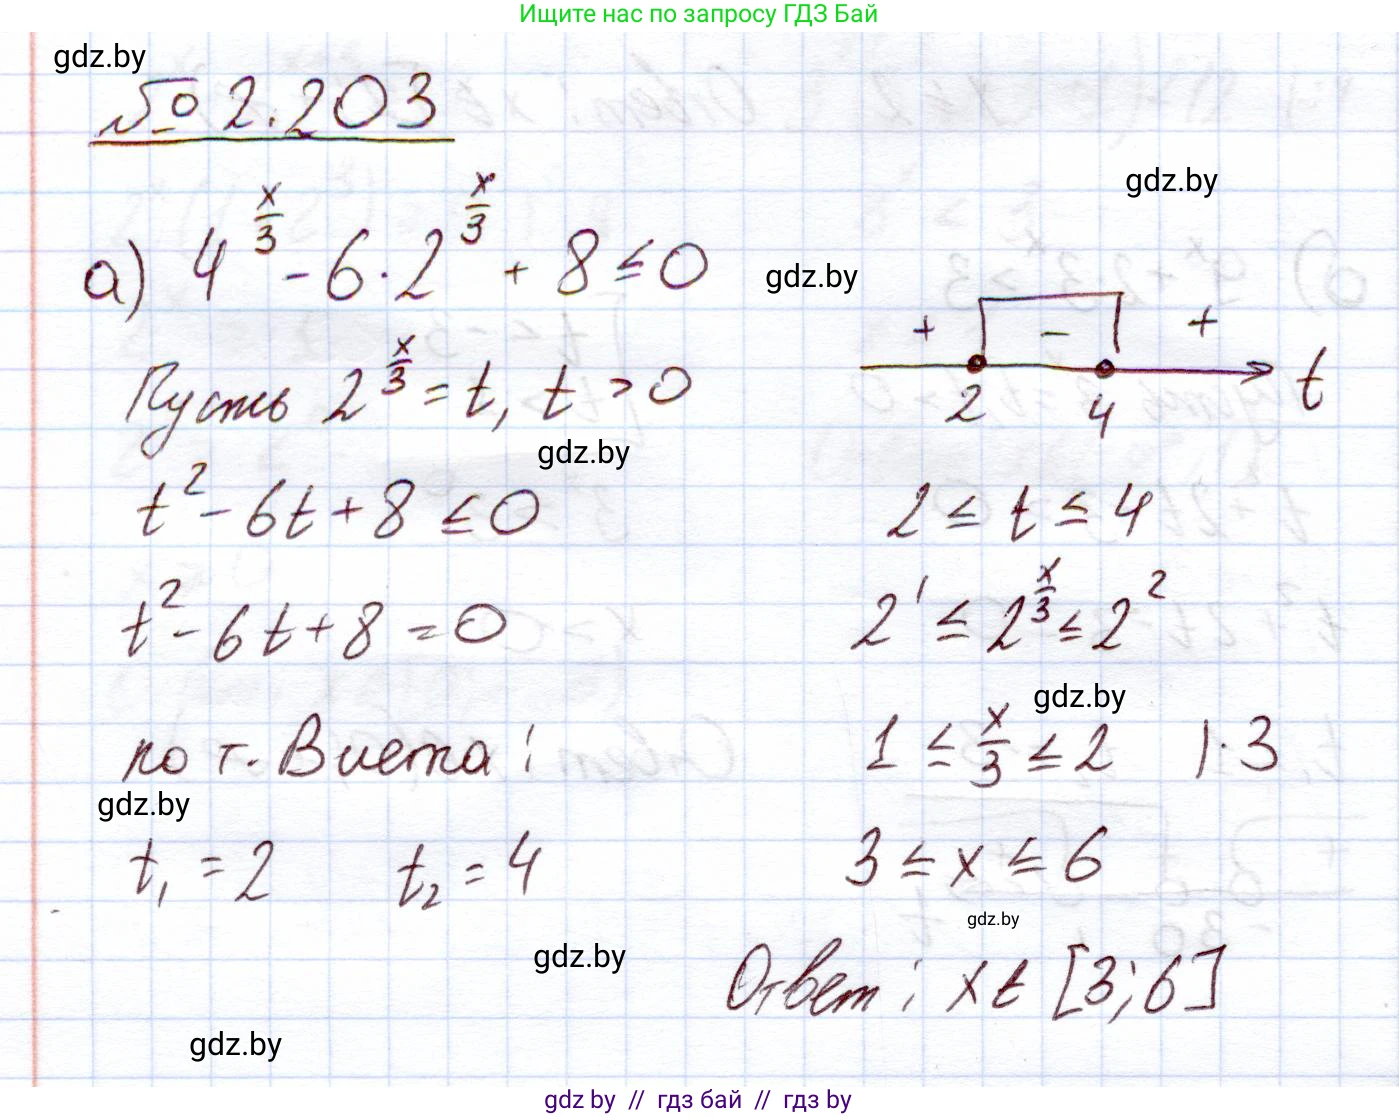 Ищите нас по запросу ГДЗ Бай
gdz.by
№ 2.203
gdz.by
а) 4^(x/3) - 6·2^(x/3) + 8 ≤ 0
gdz.by
+ - +
2 4 t
Пусть 2^(x/3) = t, t > 0
gdz.by
t² - 6t + 8 ≤ 0
t² - 6t + 8 = 0
по т. Виета:
gdz.by
t₁ = 2 t₂ = 4
2 ≤ t ≤ 4
2¹ ≤ 2^(x/3) ≤ 2²
gdz.by
1 ≤ x/3 ≤ 2 |·3
3 ≤ x ≤ 6
gdz.by
gdz.by
Ответ: x ∈ [3; 6]
gdz.by
gdz by // гдз бай // гдз by